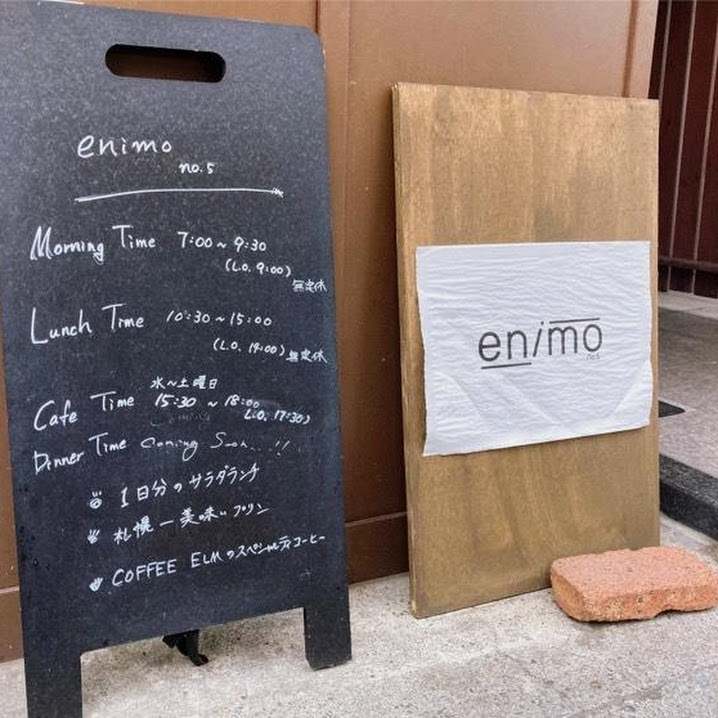 enimo
no.5
Morning Time 7:00~9:30
(L.O. 9:00)
無定休
Lunch Time 10:30~15:00
(L.O. 14:00) 無定休
水~土曜日
Cafe Time 15:30 ~ 18:00
(L.O. 17:30)
Dinner Time Coming Soon...!!
1日分のサラダランチ
札幌一美味いプリン
COFFEE ELMのスペシャルティコーヒー
enimo
no.5